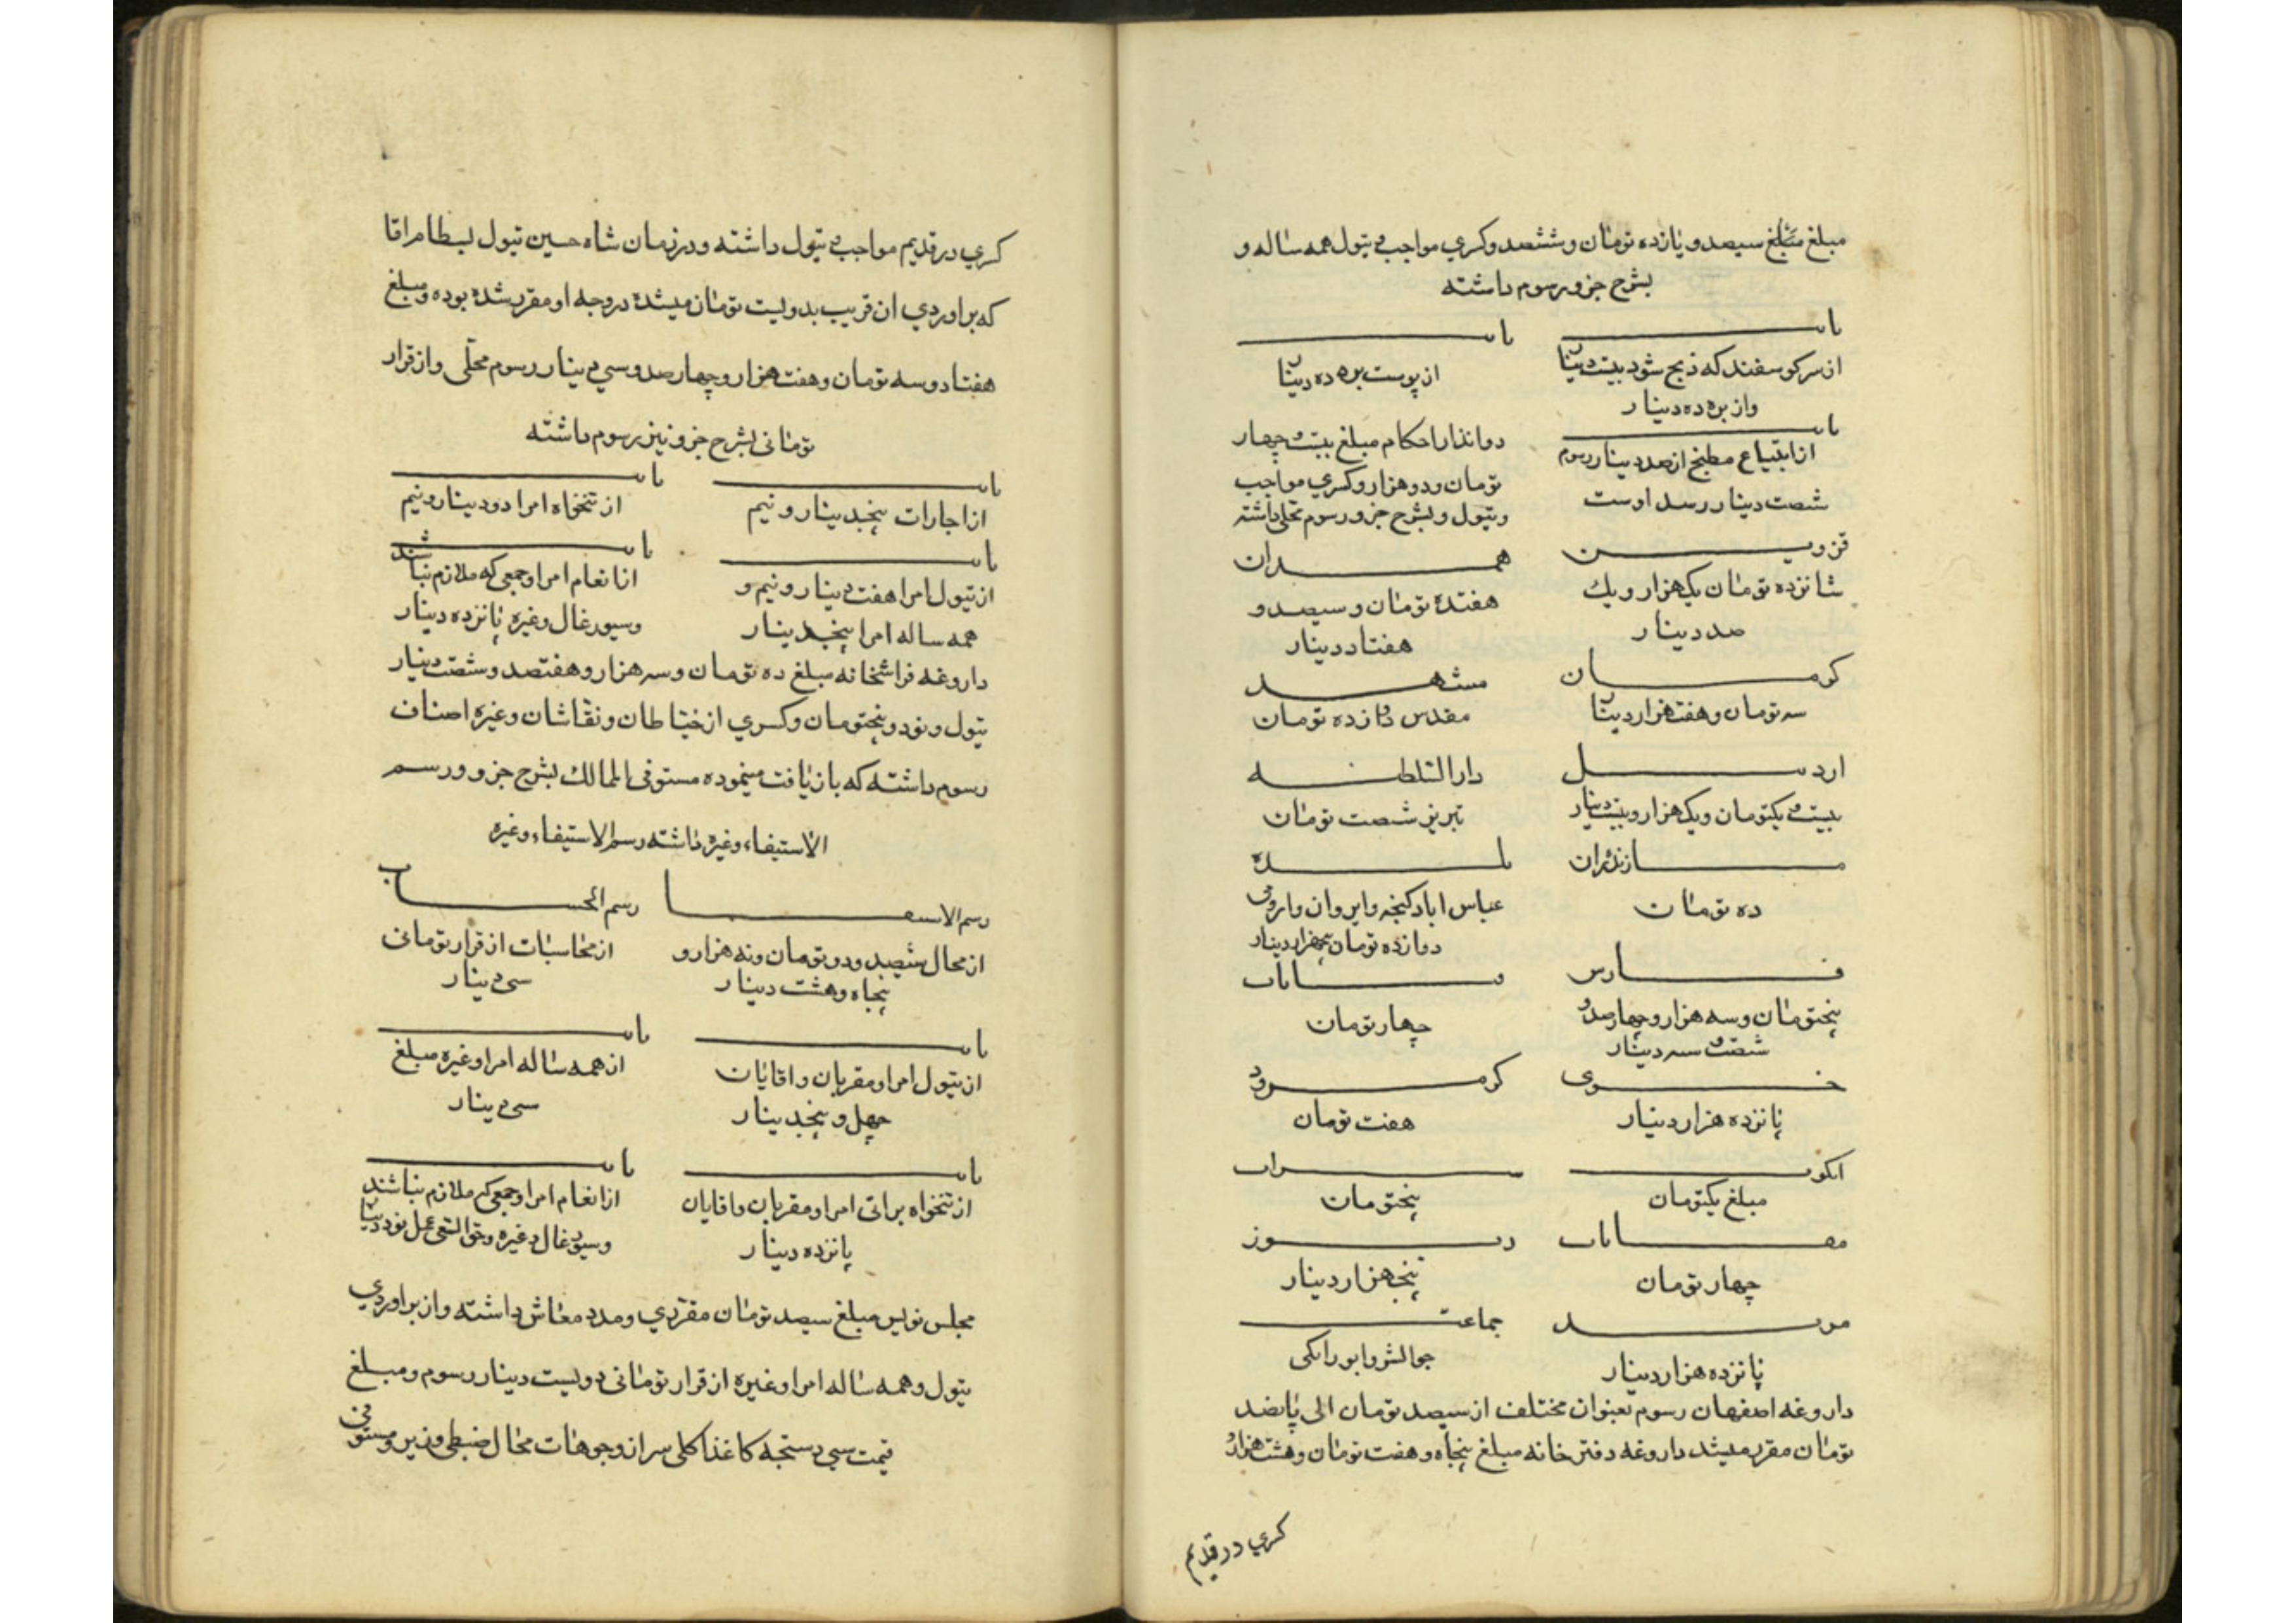 مبلغ مبلغ سیصد و یازده تومان و ششصد و کسری مواجب و تیول همه ساله و
بشرح جزو رسوم داشته
بابت
بابت
از سر کوسفند که ذبح شود بیست دینار
از پوست بره ده دینار
و از بره ده دینار
بابت
از ابتیاع مطبخ از صد دینار رسوم
شصت دینار رسد اوست
دواتدار احکام مبلغ بیست و چهار
تومان و دو هزار و کسری مواجب
و تیول و بشرح جزو رسوم محلی داشته
قزوین
همدان
شانزده تومان یکهزار و یک
صد دینار
هفتده تومان و سیصد و
هفتاد دینار
کرمان
مشهد
سه تومان و هفت هزار دینار
مقدس دوازده تومان
اردبیل
دار السلطنه
بیست و یکتومان و یکهزار و بیست دینار
تبریز شصت تومان
مازندران
بلده
ده تومان
عباس اباد کنجه و ایروان و
دوازده تومان پنجهزار دینار
فارس
پنجتومان و سه هزار و چهارصد و
شصت و سه دینار
چهار تومان
خوی
کرمرود
پانزده هزار دینار
هفت تومان
سراب
مبلغ یکتومان
پنجتومان
چهار تومان
پنجهزار دینار
مرند
جماعت
پانزده هزار دینار
داروغه اصفهان رسوم بعنوان مختلف از سیصد تومان الی پانصد
تومان مقرر میشد داروغه دفتر خانه مبلغ پنجاه و هفت تومان و هشت هزار و
کسری در قدیم
کسری در قدیم مواجب و تیول داشته و در زمان شاه حسین تیول بسطام اقا
که براوردی ان قریب بدویست تومان میشده در وجه او مقرر شده بوده و مبلغ
هفتاد و سه تومان و هفت هزار و چهار صد و سی دینار رسوم محلی و از قرار
تومانی بشرح جزو نیز رسوم داشته
بابت
بابت
از اجارات پنجدینار و نیم
از تنخواه امرا دو دینار و نیم
بابت
بابت
از تیول امرا هفت دینار و نیم و
همه ساله امرا پنجدینار
از انعام امرا و جمعی که ملازم نباشند
و سیورغال و غیره پانزده دینار
داروغه فراشخانه مبلغ ده تومان و سه هزار و هفتصد و شصت دینار
تیول و نود و پنجتومان و کسری از خیاطان و نقاشان و غیره اصناف
رسوم داشته که بازیافت مینموده مستوفی الممالک بشرح جزو و رسم
الاستیفاء و غیره داشته رسم الاستیفاء و غیره
رسم الاستیفا
رسم الحساب
از محال ششصد و دو تومان و نه هزار و
پنجاه و هشت دینار
از محاسبات از قرار تومانی
سی دینار
بابت
بابت
از تیول امرا و مقربان و اقایان
چهل و پنجدینار
از همه ساله امرا و غیره مبلغ
سی دینار
بابت
بابت
از تنخواه براتی امرا و مقربان و اقایان
پانزده دینار
از انعام امرا و جمعی که ملازم نباشند
و سیورغال و غیره و حق السعی عمل نود دینار
مجلس نویس مبلغ سیصد تومان مقرری و مدد معاش داشته و از براوردی
تیول و همه ساله امرا و غیره از قرار تومانی دویست دینار رسوم و مبلغ
قیمت سی دستجه کاغذ اکلی سر از وجوهات محال ضبطی وزیر و مستوفی